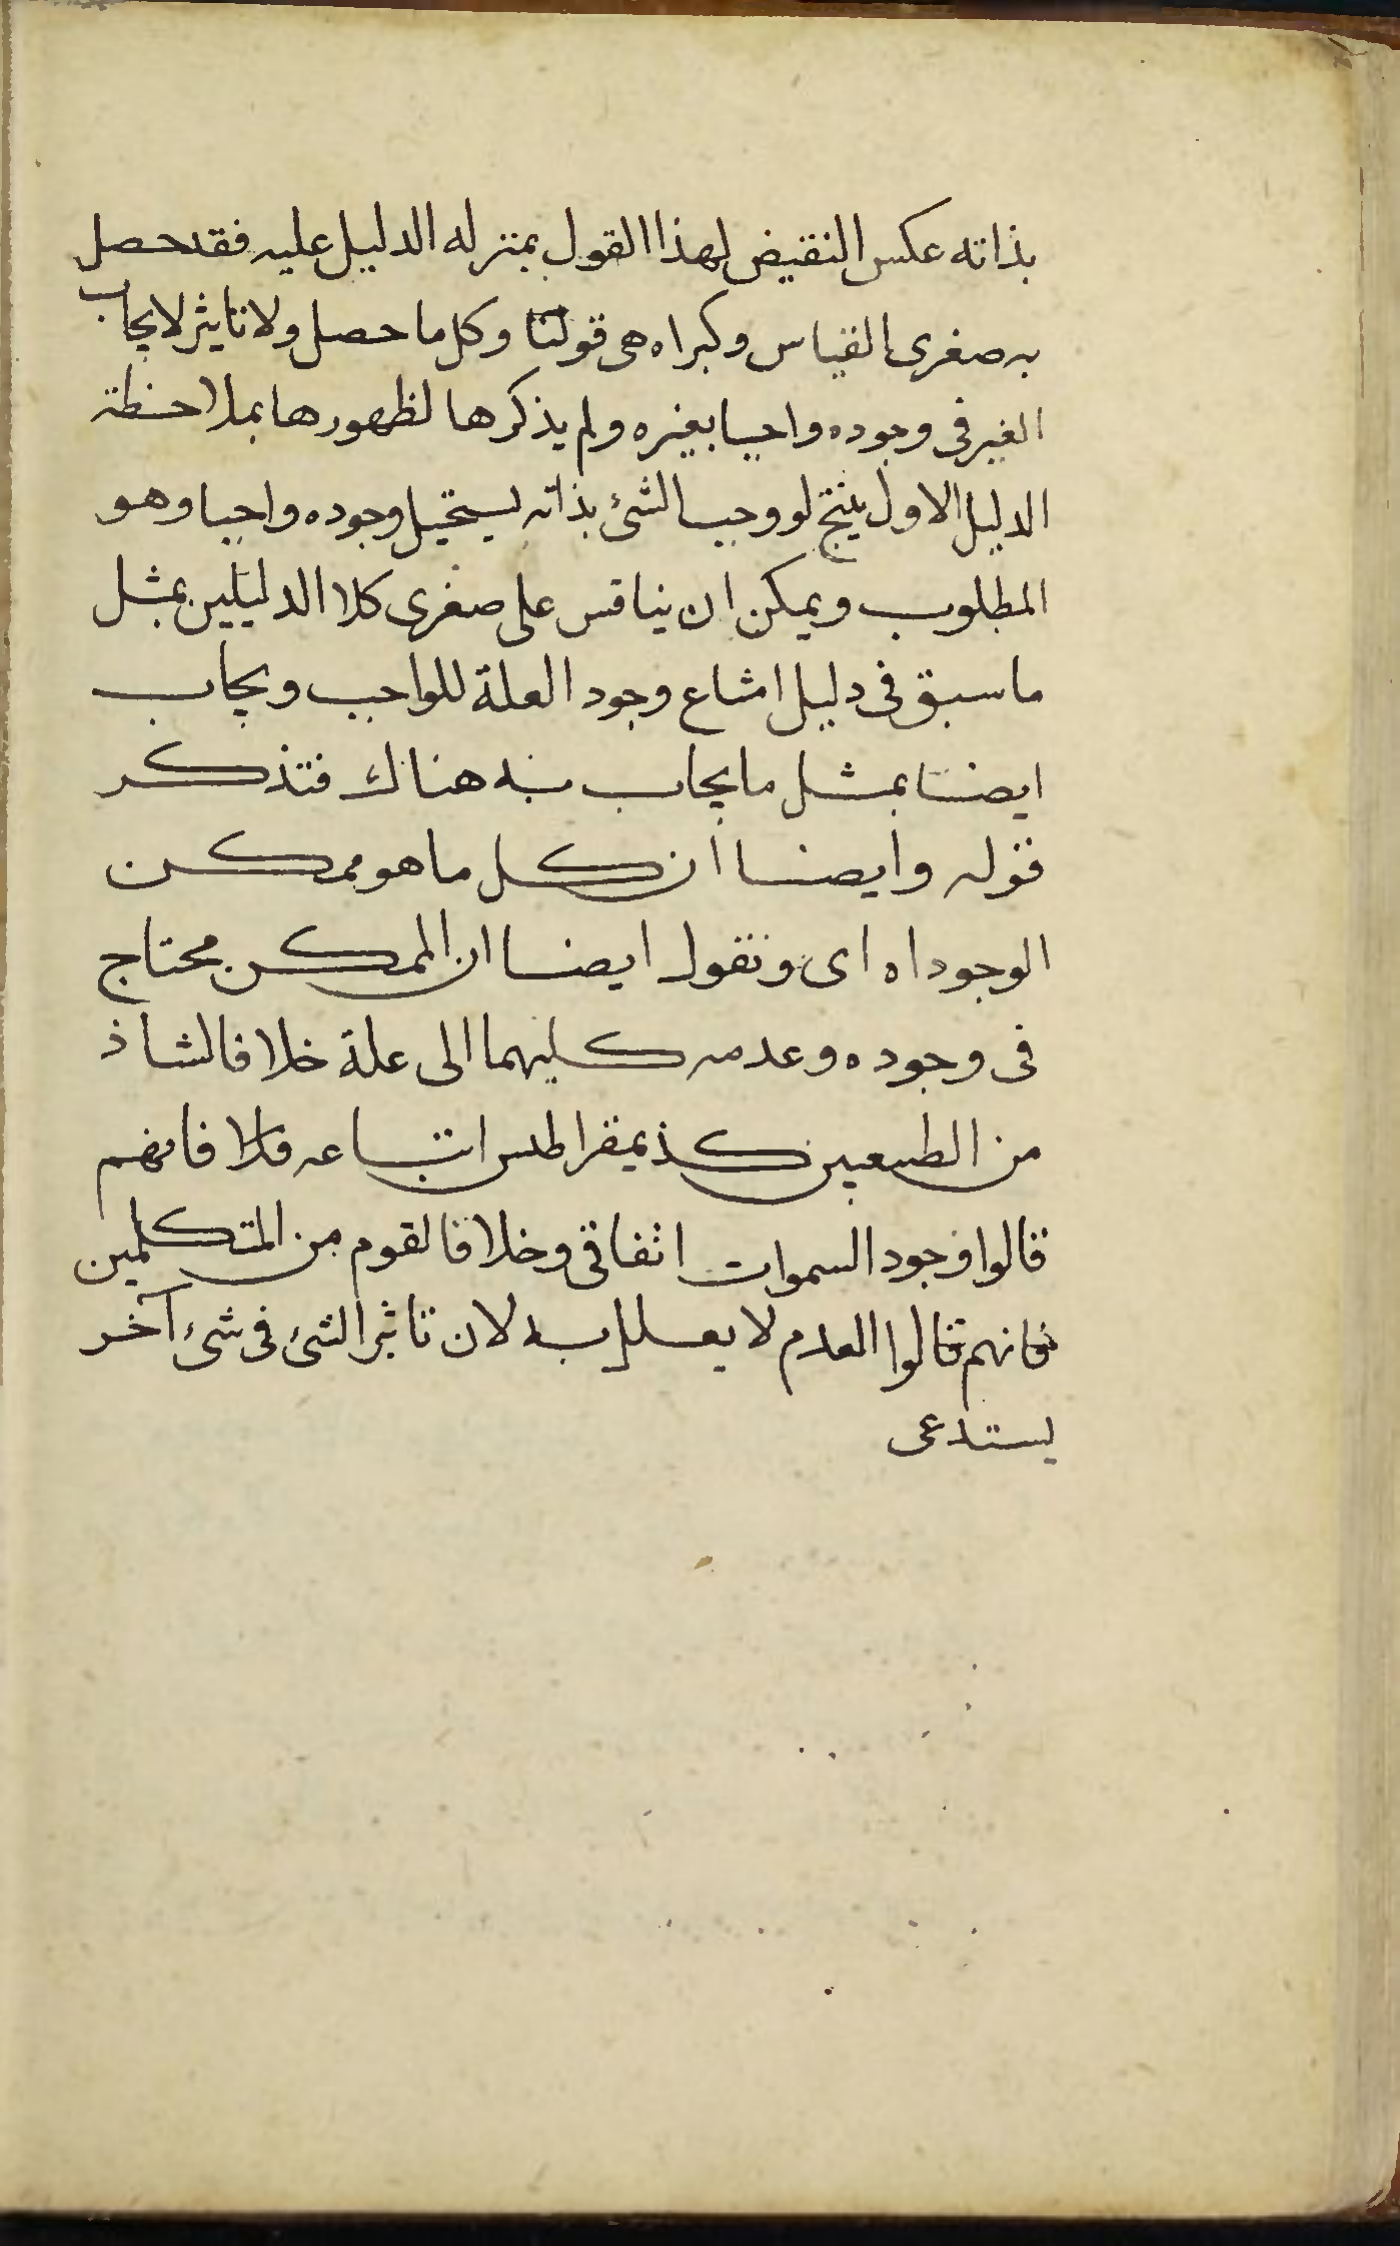 بذاته عكس النقيض لهذا القول بمنزله الدليل عليه فقد حصل
به صغرى القياس وكبراه هى قولنا وكل ما حصل ولا تاثير لايجاب
الغير فى وجوده واجبا بغيره ولم يذكرها لظهورها بملاحظة
الدليل الاول ينتج لو وجب الشئ بذاته يستحيل وجوده واجبا وهو
المطلوب ويمكن ان يناقس على صغرى كلا الدليلين بمثل
ما سبق فى دليل امتناع وجود العلة للواجب ويجاب
ايضا بمثل ما يجاب به هناك فتذكر
قوله وايضا ان كل ما هو ممكن
الوجود اه اى ونقول ايضا ان الممكن محتاج
فى وجوده وعدمه كليهما الى علة خلافا لشاذ
من الطبعيين كذيمقراطس اتباعه فانهم
قالوا وجود السموات اتفاقى وخلافا لقوم من المتكلمين
فانهم قالوا العدم لا يعلل به لان تاثير الشئ فى شئ آخر
يستدعى